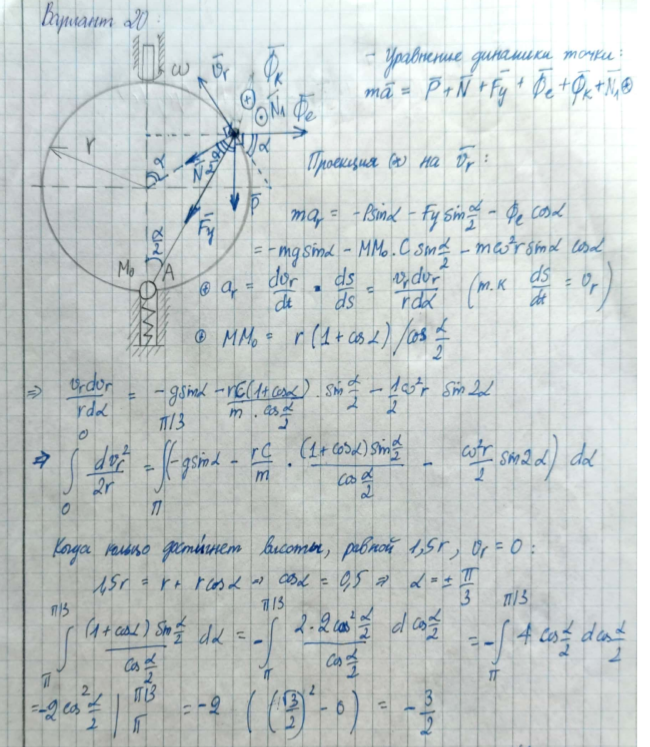 Вариант 20:
ω
v̄r
Φ̄k
N̄1
Φ̄e
r
α
α
N̄
P̄
F̄y
α/2
M0
A
- Уравнение динамики точки:
mā = P̄ + N̄ + F̄y + Φ̄e + Φ̄k + N̄1 ⊕
Проекция на v̄r:
mar = -Psinα - Fy sin α/2 - Φe cosα
= -mgsinα - MM0·C sin α/2 - mω²r sinα cosα
⊕ ar = dvr/dt · ds/ds = vrdvr/rdα (т.к ds/dt = vr)
⊕ MM0 = r(1+cosα)/cos α/2
⇒ vrdvr/rdα = -gsinα - rC(1+cosα)/(m·cos α/2) · sin α/2 - 1/2 ω²r sin2α
⇒ ∫₀⁰ dvr²/2r = ∫_π^{π/3} (-gsinα - rC/m · (1+cosα)sin α/2 / cos α/2 - ω²r/2 sin2α) dα
Когда кольцо достигнет высоты, равной 1,5r, vr = 0:
1,5r = r + rcosα ⇒ cosα = 0,5 ⇒ α = ± π/3
∫_π^{π/3} (1+cosα) sin α/2 / cos α/2 dα = -∫_π^{π/3} 2·2cos² α/2 / cos α/2 d cos α/2 = -∫_π^{π/3} 4 cos α/2 dcos α/2
= -2 cos² α/2 |_π^{π/3} = -2 ((√3/2)² - 0) = -3/2